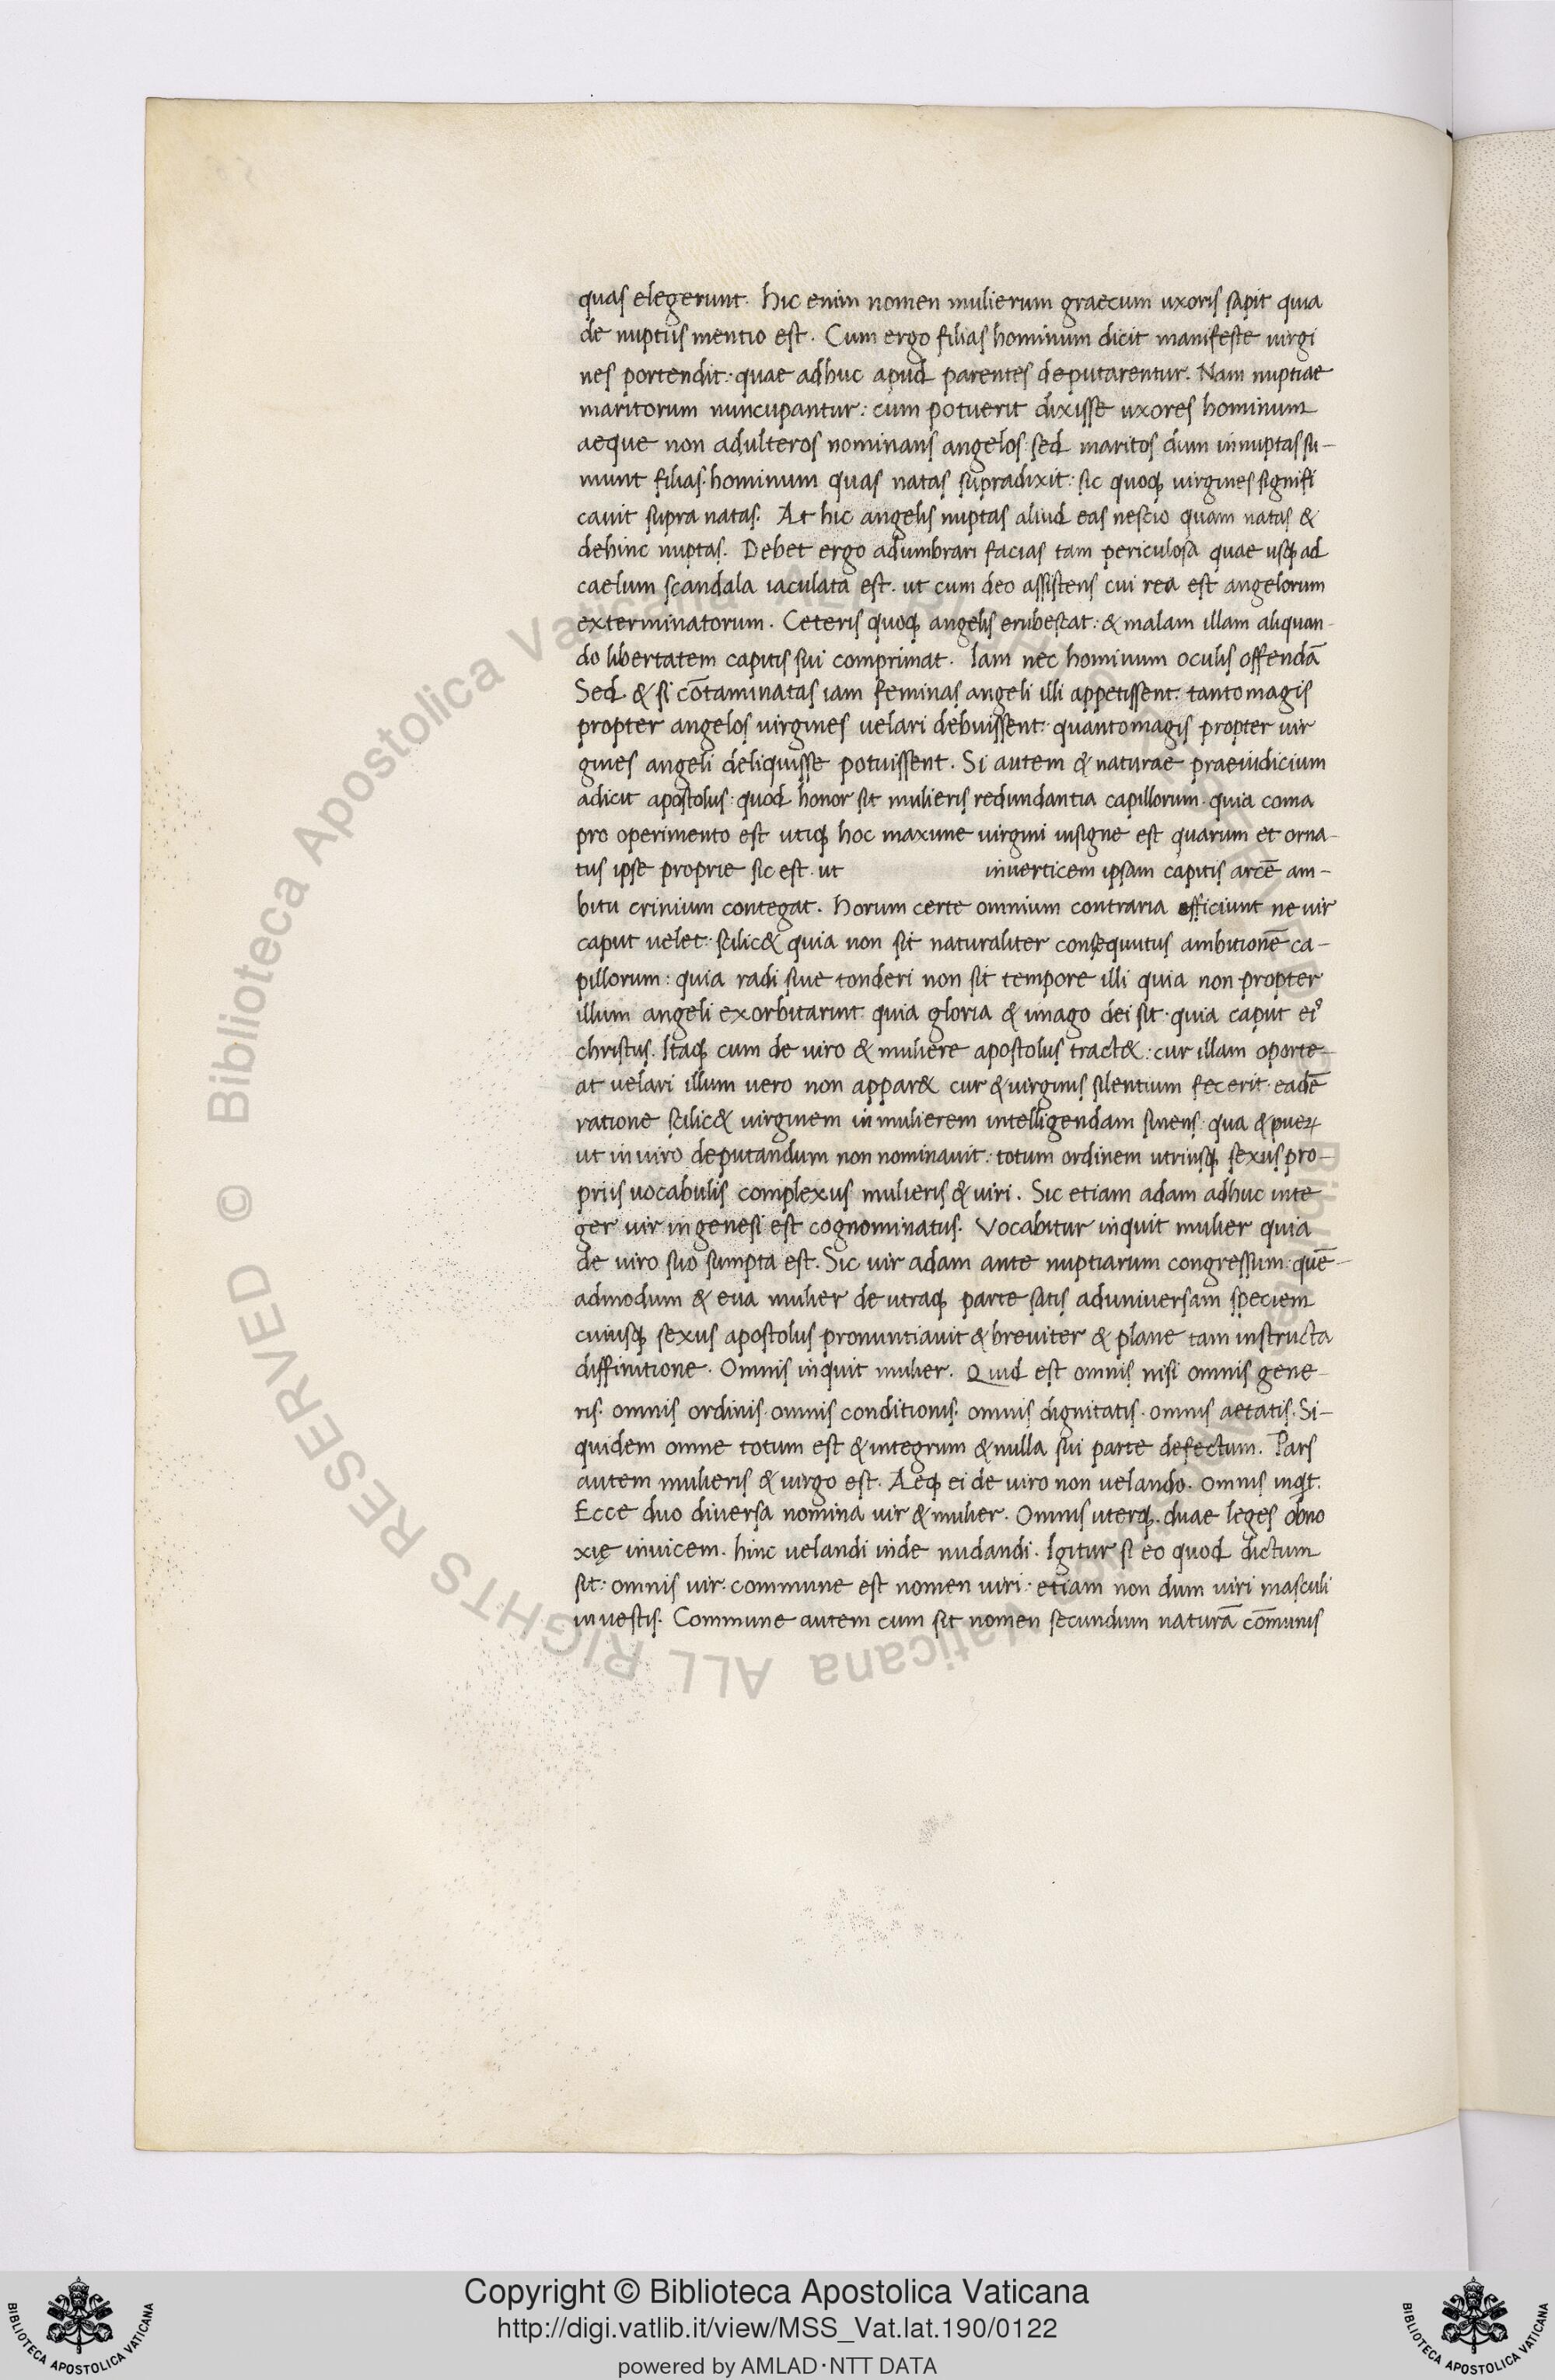 quas elegerunt. hic enim nomen mulierum graecum uxoris sapit quia
de nuptiis mentio est. Cum ergo filias hominum dicit manifeste virgi
nes portendit: quae adhuc apud parentes deputarentur. Nam nuptiae
maritorum nuncupantur: cum potuerit dixisse uxores hominum
aeque non adulteros nominans angelos: sed maritos dum innuptas su-
munt filias. hominum quas natas supradixit: sic quoq virgines signifi
cavit supra natas. At hic angelis nuptas aliud eas nescio quam natas &
dehinc nuptas. Debet ergo adumbrari facias tam periculosa quae usq ad
caelum scandala iaculata est. ut cum deo assistens cui rea est angelorum
exterminatorum. Ceteris quoq angelis erubescat: & malam illam aliquan-
do libertatem capitis sui comprimat. Iam nec hominum oculis offendā
Sed. & si cōtaminatas iam feminas angeli illi appetissent. tantomagis
propter angelos virgines velari debuissent: quantomagis propter vir
gines angeli deliquisse potuissent. Si autem & naturae praeiudicium
adicit apostolus: quod honor sit mulieris redundantia capillorum. quia coma
pro operimento est utiq hoc maxime virgini insigne est quarum et orna-
tus ipse proprie sic est. ut inverticem ipsam capitis arcē am-
bitu crinium contegat. horum certe omnium contraria efficiunt ne vir
caput velet: scilic& quia non sit naturaliter consequutus ambitionē ca-
pillorum: quia radi sive tonderi non sit tempore illi quia non propter
illum angeli exorbitarint. quia gloria & imago dei sit. quia caput ei⁹
christus. Itaq cum de viro & muliere apostolus tract&: cur illam oporte-
at velari illum vero non appar& cur & virginis silentium fecerit. eadē
ratione scilic& virginem in mulierem intelligendam sinens: qua & pueꝝ
ut in viro deputandum non nominavit: totum ordinem utriusq sexus pro-
priis vocabulis complexus mulieris & viri. Sic etiam adam adhuc inte
ger vir in genesi est cognominatus. Vocabitur inquit mulier quia
de viro suo sumpta est. Sic vir adam ante nuptiarum congressum: quē-
admodum & eva mulier de utraq parte satis aduniversam speciem
cuiusq sexus apostolus pronuntiavit & breviter & plane tam instructa
diffinitione. Omnis inquit mulier. Quid est omnis nisi omnis gene-
ris. omnis ordinis. omnis conditionis. omnis dignitatis. omnis aetatis. Si-
quidem omne totum est & integrum & nulla sui parte defectum. Pars
autem mulieris & virgo est. Aeq ei de viro non velando. omnis inqt.
Ecce duo diversa nomina vir & mulier. Omnis uterq. duae leges obno
xię invicem. hinc velandi inde nudandi. Igitur si eo quod dictum
sit: omnis vir. commune est nomen viri. etiam non dum viri masculi
investis. Commune autem cum sit nomen secundum naturā cōmunis
© Biblioteca Apostolica Vaticana ALL RIGHTS RESERVED
Copyright © Biblioteca Apostolica Vaticana
http://digi.vatlib.it/view/MSS_Vat.lat.190/0122
powered by AMLAD·NTT DATA
BIBLIOTECA APOSTOLICA VATICANA
BIBLIOTECA APOSTOLICA VATICANA